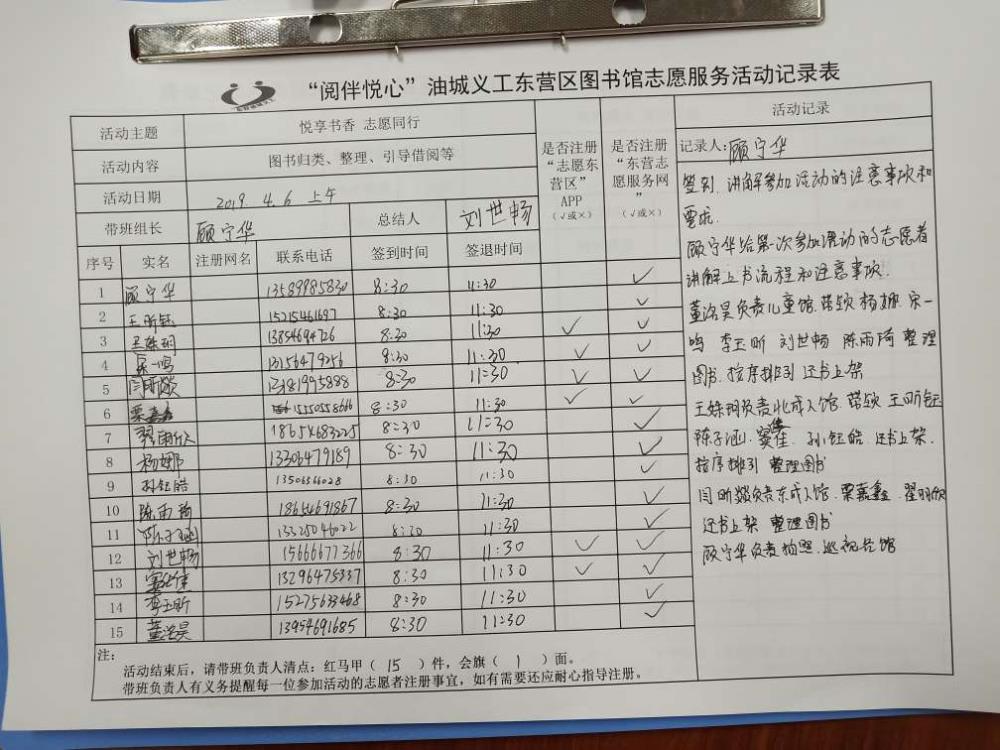 “阅伴悦心”油城义工东营区图书馆志愿服务活动记录表
活动主题 悦享书香 志愿同行
活动内容 图书归类、整理、引导借阅等
活动日期 2019 4.6 上午
带班组长 顾宁华 总结人 刘世畅
是否注册“志愿东营区”APP（√或×）
是否注册“东营志愿服务网”（√或×）
活动记录
序号 实名 注册网名 联系电话 签到时间 签退时间
1 顾宁华 13589985830 8:30 11:30 √
2 王昕钰 15215461697 8:30 11:30 √
3 王姝玥 13854694726 8:30 11:30 √ √
4 宋一鸣 13156479256 8:30 11:30 √ √
5 闫昕燚 13181995888 8:30 11:30 √ √
6 栗嘉鑫 15550558666 8:30 11:30 √ √
7 翟雨欣 18654683225 8:30 11:30 √
8 杨娜 13305479189 8:30 11:30 √
9 孙钰皓 8:30 11:30 √
10 陈雨琦 18654691867 8:30 11:30 √
11 陈子涵 13325046022 8:30 11:30 √
12 刘世畅 15666677366 8:30 11:30 √ √
13 13296475337 8:30 11:30 √ √
14 李玉昕 15275633468 8:30 11:30 √
15 董洺昊 13954691685 8:30 11:30 √
记录人：顾宁华
签到，讲解参加活动的注意事项和
要求．
顾宁华给第一次参加活动的志愿者
讲解上书流程和注意事项．
董洺昊负责儿童馆．带领 杨娜．宋一
鸣 李玉昕 刘世畅 陈雨琦 整理
图书．按序排列 还书上架
王姝玥负责北成人馆．带领 王昕钰
陈子涵． 孙钰皓．还书上架．
按序排列 整理图书
闫昕燚负责东成人馆．栗嘉鑫．翟雨欣
还书上架 整理图书
顾宁华负责拍照．巡视全馆
注：
活动结束后，请带班负责人清点：红马甲（ 15 ）件，会旗（ 1 ）面。
带班负责人有义务提醒每一位参加活动的志愿者注册事宜，如有需要还应耐心指导注册。